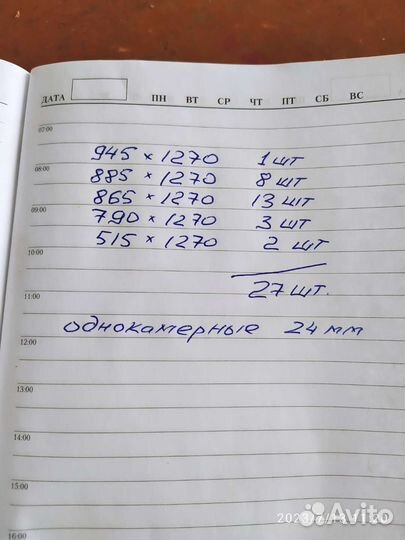 ДАТА ПН ВТ СР ЧТ ПТ СБ ВС
07:00
945 × 1270 1 шт
08:00
885 × 1270 8 шт
865 × 1270 13 шт
09:00
790 × 1270 3 шт
515 × 1270 2 шт
10:00
27 шт.
11:00
однокамерные 24 мм
12:00
13:00
14:00
15:00
16:00
Avito